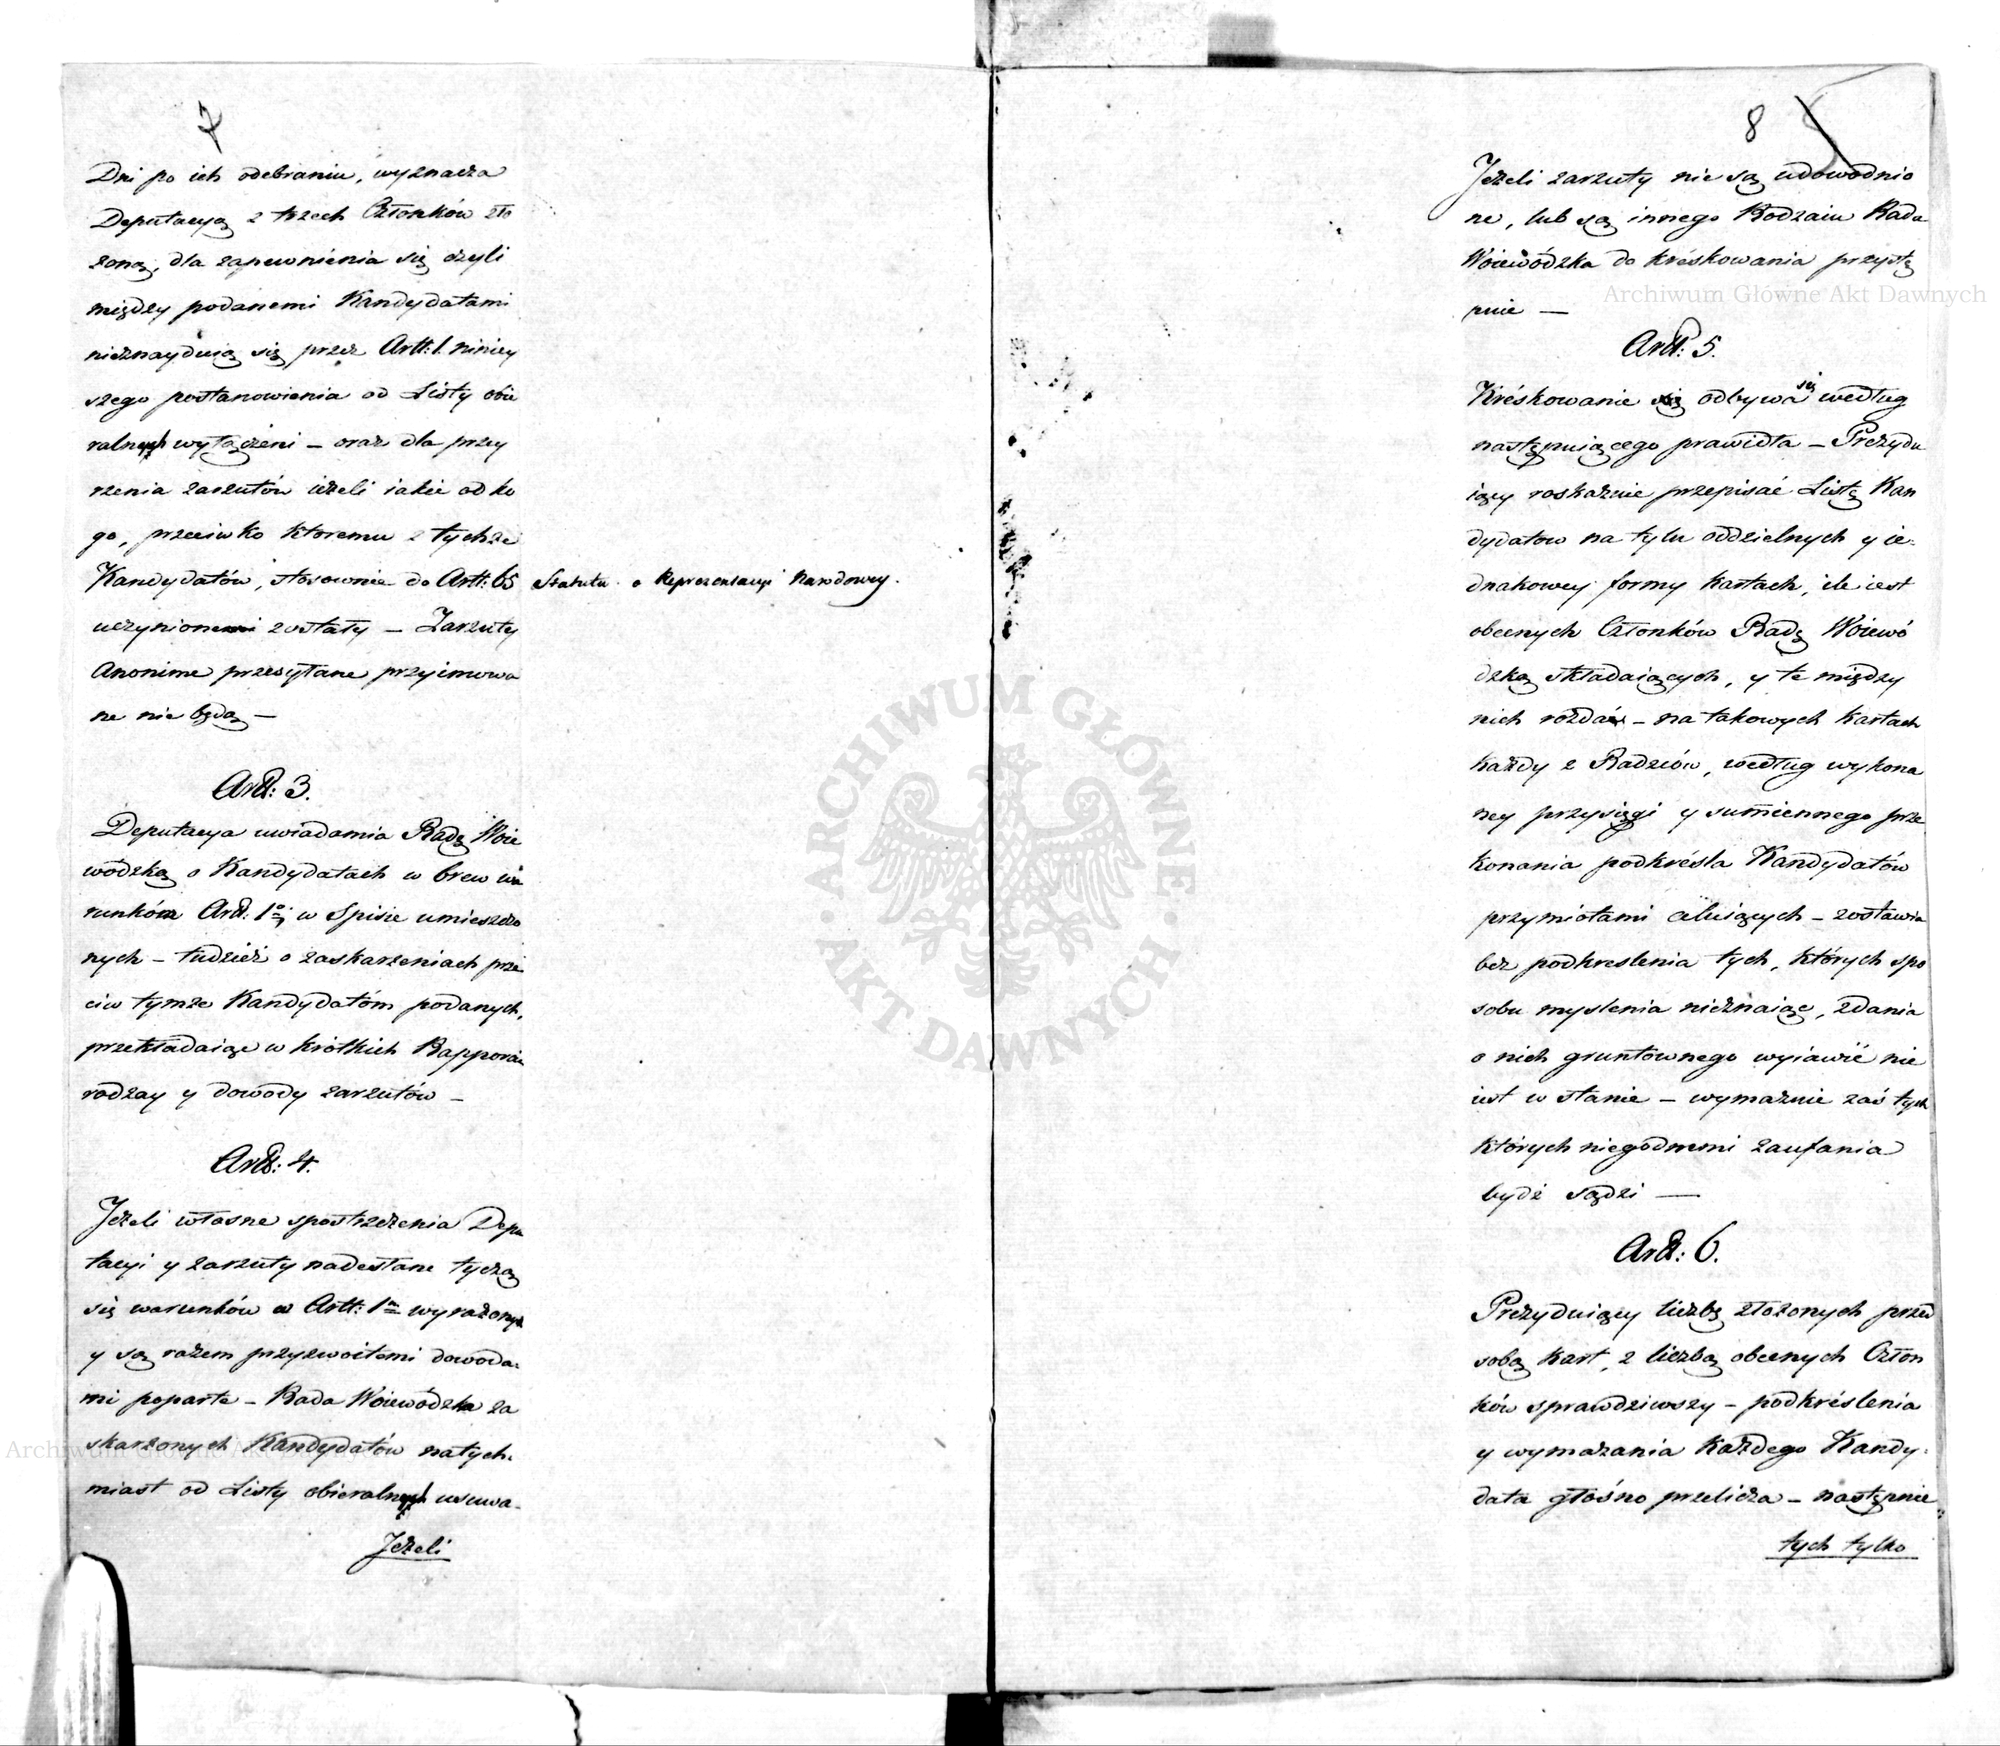 7
Dni po ich odebraniu, wyznacza
Deputacyą z trzech Członków zło
żoną, dla zapewnienia się czyli
między podanemi Kandydatami
nieznayduią się przez Artt: 1. niniey
szego postanowienia od Listy obie
ralnych wyłączeni – oraz dla przey
rzenia zarzutów ieżeli iakie od ko
go, przeciwko ktoremu z tychże
Kandydatów, stosownie do Artt: 65 Statutu o Reprezentacyi Narodowey.
uczynione zostały – Zarzuty
Anonime przesyłane przyimowa
ne nie będą –
Artt: 3.
Deputacya uwiadamia Radę Woie
wódzką o Kandydatach w brew wa
runkóm Artt: 1º w Spisie umieszczo
nych – tudzież o zaskarżeniach prze
ciw tymże Kandydatóm podanych,
przekładaiąc w krótkich Rapportach
rodzay y dowody zarzutów –
Artt: 4.
Jeżeli własne spostrzeżenia Depu
tacyi y zarzuty nadesłane tyczą
się warunków w Artt: 1m wyrażonych
y są razem przyzwoitemi dowoda-
mi poparte – Rada Woiewódzka za
skarżonych Kandydatów natych-
miast od Listy obieralnych usuwa.
Jeżeli
8
Jeżeli zarzuty nie są udowodnio
ne, lub są innego Rodzaiu Rada
Woiewódzka do kréskowania przystę
puie —
Artt: 5.
Kréskowanie odbywa się według
następuiącego prawidła – Prezydu
iący roskaże przepisać Listę Kan
dydatow na tylu oddzielnych y ie-
dnakowey formy kartach, ile iest
obecnych Członków Radę Woiewó
dzką składaiących, y te między
nich rozdać – na takowych kartach
każdy z Radzców, według wykona
ney przysięgi y sumiennego prze
konania podkréśla Kandydatów
przymiotami celuiących – zostawia
bez podkreslenia tych, których spo
sobu myslenia nieznaiąc, zdania
o nich gruntownego wyiawić nie
iest w stanie – wymaże zaś tych
których niegodnemi zaufania
bydź sądzi —
Artt: 6.
Prezyduiący liczbę złożonych przed
sobą kart, z liczbą obecnych Człon
ków sprawdziwszy – podkréślenia
y wymazania każdego Kandy-
data głośno przelicza – następnie
tych tylko
Archiwum Główne Akt Dawnych
ARCHIWUM GŁÓWNE AKT DAWNYCH